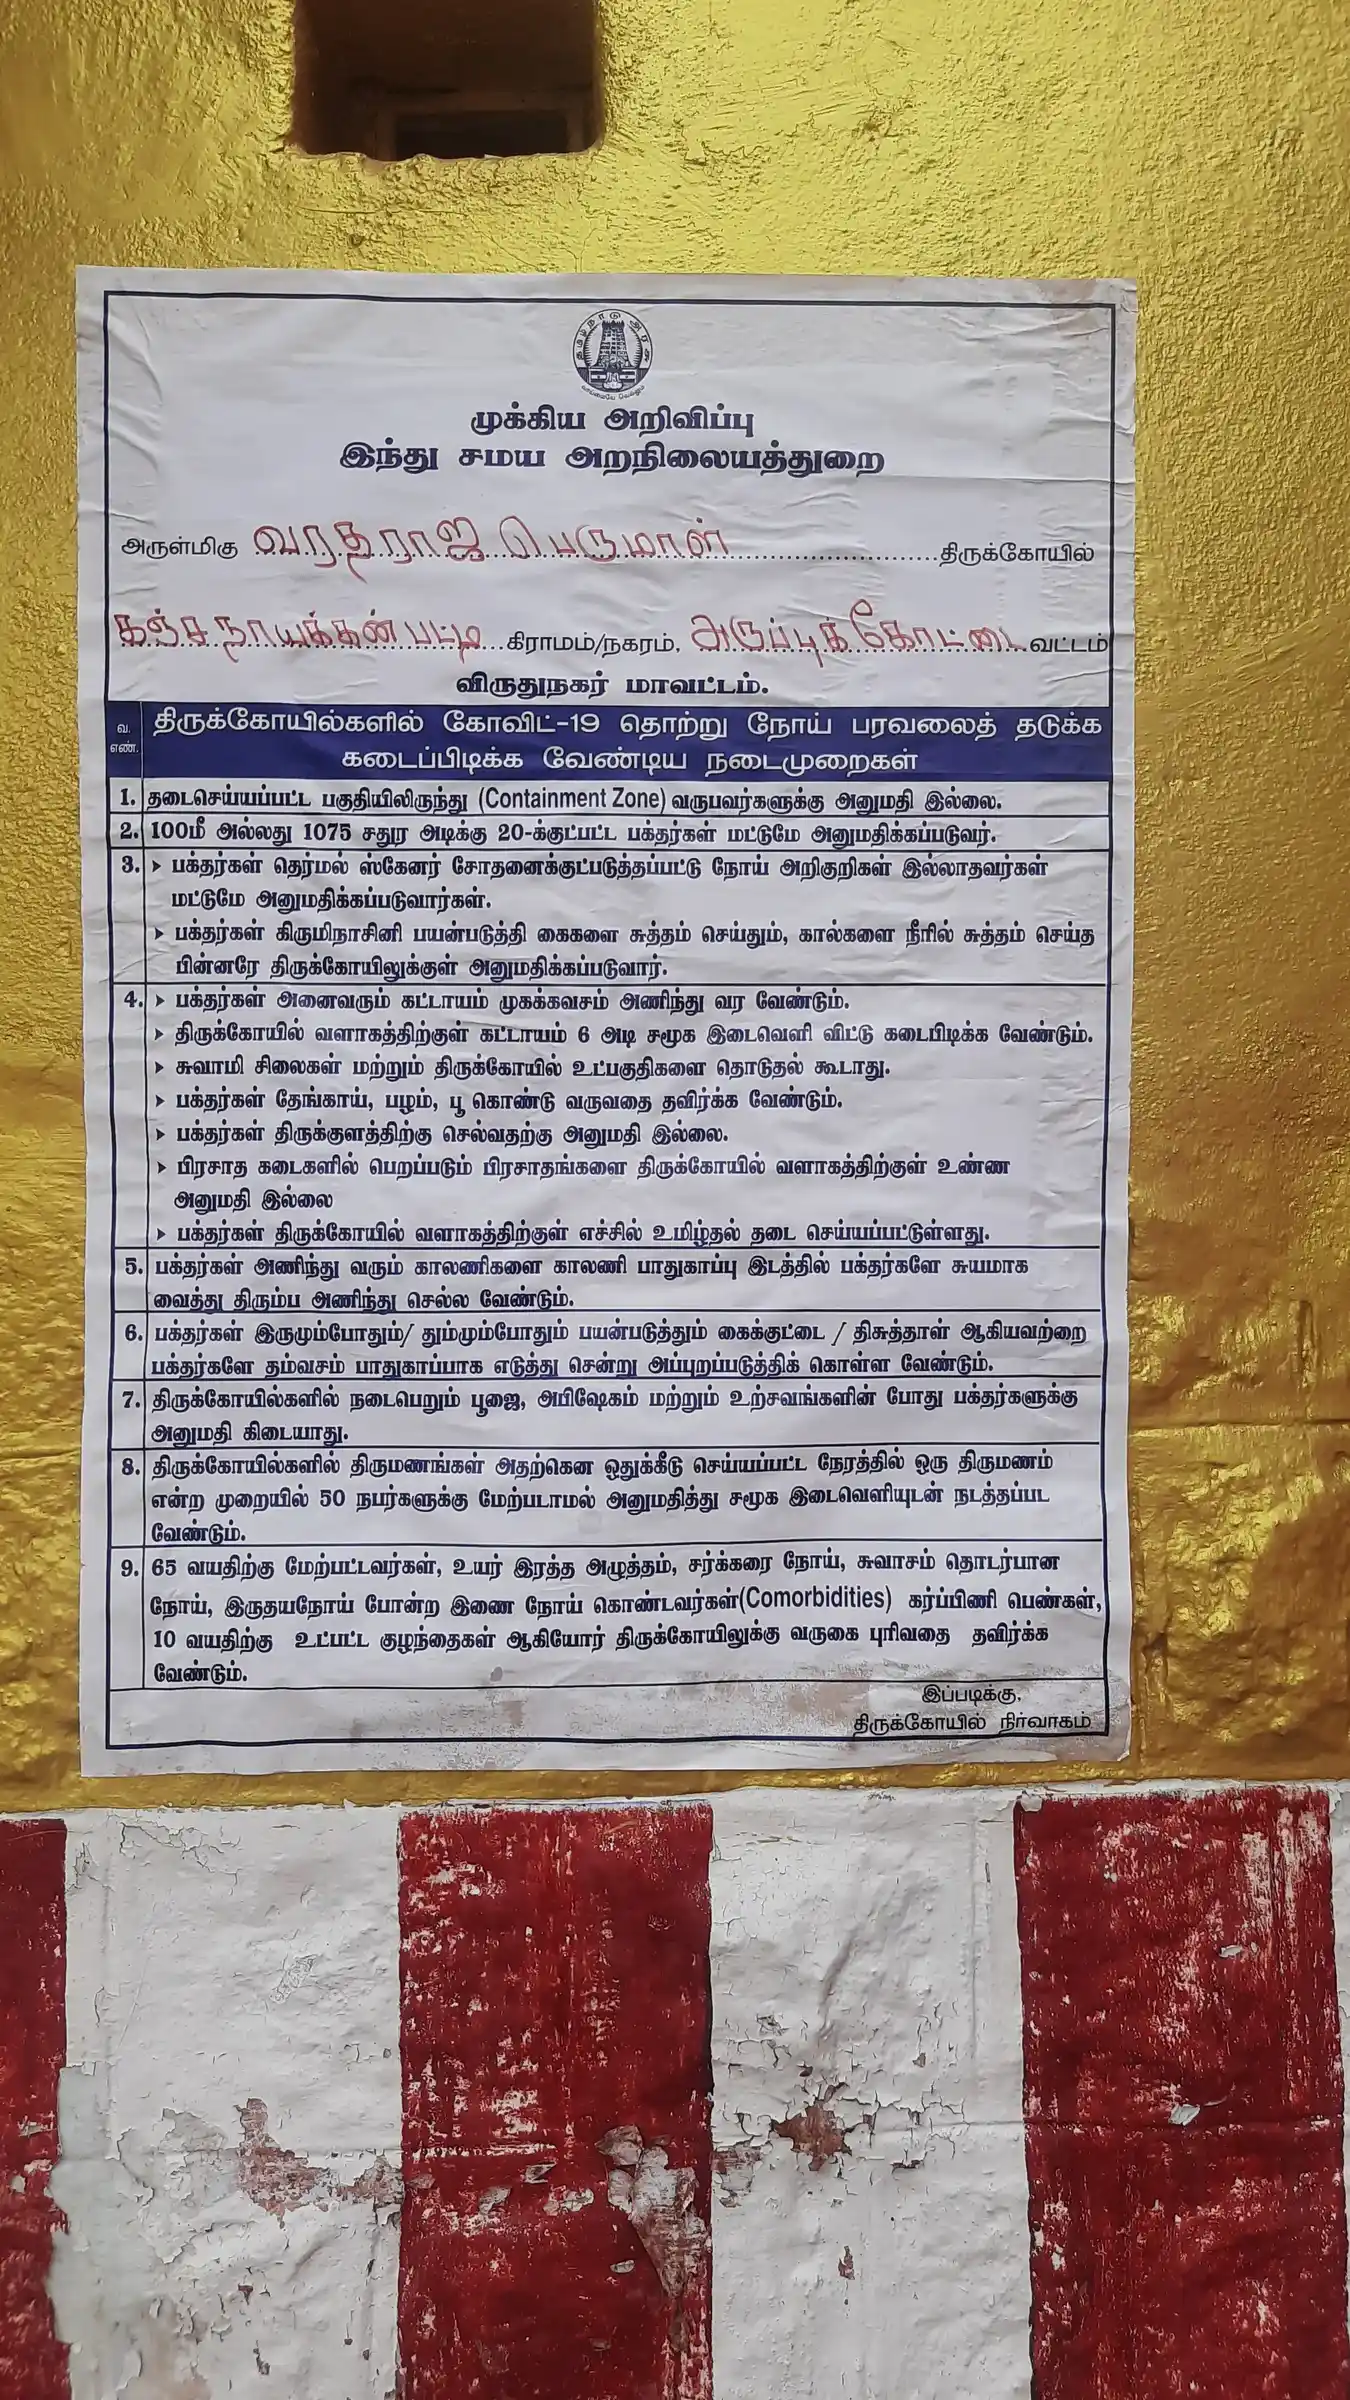 தமிழ்நாடு அரசு
வாய்மையே வெல்லும்
முக்கிய அறிவிப்பு
இந்து சமய அறநிலையத்துறை
அருள்மிகு வரதராஜ பெருமாள் திருக்கோயில்
கஞ்சநாயக்கன்பட்டி கிராமம்/நகரம், அருப்புக்கோட்டை வட்டம்
விருதுநகர் மாவட்டம்.
வ. எண். திருக்கோயில்களில் கோவிட்-19 தொற்று நோய் பரவலைத் தடுக்க
கடைப்பிடிக்க வேண்டிய நடைமுறைகள்
1. தடைசெய்யப்பட்ட பகுதியிலிருந்து (Containment Zone) வருபவர்களுக்கு அனுமதி இல்லை.
2. 100மீ அல்லது 1075 சதுர அடிக்கு 20-க்குட்பட்ட பக்தர்கள் மட்டுமே அனுமதிக்கப்படுவர்.
3. ➤ பக்தர்கள் தெர்மல் ஸ்கேனர் சோதனைக்குட்படுத்தப்பட்டு நோய் அறிகுறிகள் இல்லாதவர்கள்
மட்டுமே அனுமதிக்கப்படுவார்கள்.
➤ பக்தர்கள் கிருமிநாசினி பயன்படுத்தி கைகளை சுத்தம் செய்தும், கால்களை நீரில் சுத்தம் செய்த
பின்னரே திருக்கோயிலுக்குள் அனுமதிக்கப்படுவார்.
4. ➤ பக்தர்கள் அனைவரும் கட்டாயம் முகக்கவசம் அணிந்து வர வேண்டும்.
➤ திருக்கோயில் வளாகத்திற்குள் கட்டாயம் 6 அடி சமூக இடைவெளி விட்டு கடைபிடிக்க வேண்டும்.
➤ சுவாமி சிலைகள் மற்றும் திருக்கோயில் உட்பகுதிகளை தொடுதல் கூடாது.
➤ பக்தர்கள் தேங்காய், பழம், பூ கொண்டு வருவதை தவிர்க்க வேண்டும்.
➤ பக்தர்கள் திருக்குளத்திற்கு செல்வதற்கு அனுமதி இல்லை.
➤ பிரசாத கடைகளில் பெறப்படும் பிரசாதங்களை திருக்கோயில் வளாகத்திற்குள் உண்ண
அனுமதி இல்லை
➤ பக்தர்கள் திருக்கோயில் வளாகத்திற்குள் எச்சில் உமிழ்தல் தடை செய்யப்பட்டுள்ளது.
5. பக்தர்கள் அணிந்து வரும் காலணிகளை காலணி பாதுகாப்பு இடத்தில் பக்தர்களே சுயமாக
வைத்து திரும்ப அணிந்து செல்ல வேண்டும்.
6. பக்தர்கள் இருமும்போதும்/ தும்மும்போதும் பயன்படுத்தும் கைக்குட்டை / திசுத்தாள் ஆகியவற்றை
பக்தர்களே தம்வசம் பாதுகாப்பாக எடுத்து சென்று அப்புறப்படுத்திக் கொள்ள வேண்டும்.
7. திருக்கோயில்களில் நடைபெறும் பூஜை, அபிஷேகம் மற்றும் உற்சவங்களின் போது பக்தர்களுக்கு
அனுமதி கிடையாது.
8. திருக்கோயில்களில் திருமணங்கள் அதற்கென ஒதுக்கீடு செய்யப்பட்ட நேரத்தில் ஒரு திருமணம்
என்ற முறையில் 50 நபர்களுக்கு மேற்படாமல் அனுமதித்து சமூக இடைவெளியுடன் நடத்தப்பட
வேண்டும்.
9. 65 வயதிற்கு மேற்பட்டவர்கள், உயர் இரத்த அழுத்தம், சர்க்கரை நோய், சுவாசம் தொடர்பான
நோய், இருதயநோய் போன்ற இணை நோய் கொண்டவர்கள்(Comorbidities) கர்ப்பிணி பெண்கள்,
10 வயதிற்கு உட்பட்ட குழந்தைகள் ஆகியோர் திருக்கோயிலுக்கு வருகை புரிவதை தவிர்க்க
வேண்டும்.
இப்படிக்கு,
திருக்கோயில் நிர்வாகம்